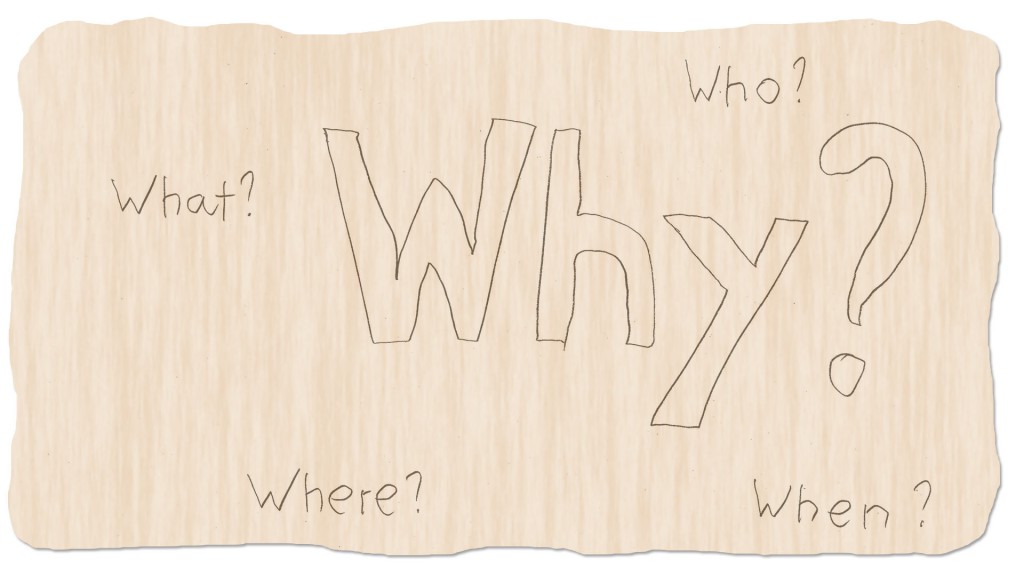 Who?
What?
Why?
Where?
When?